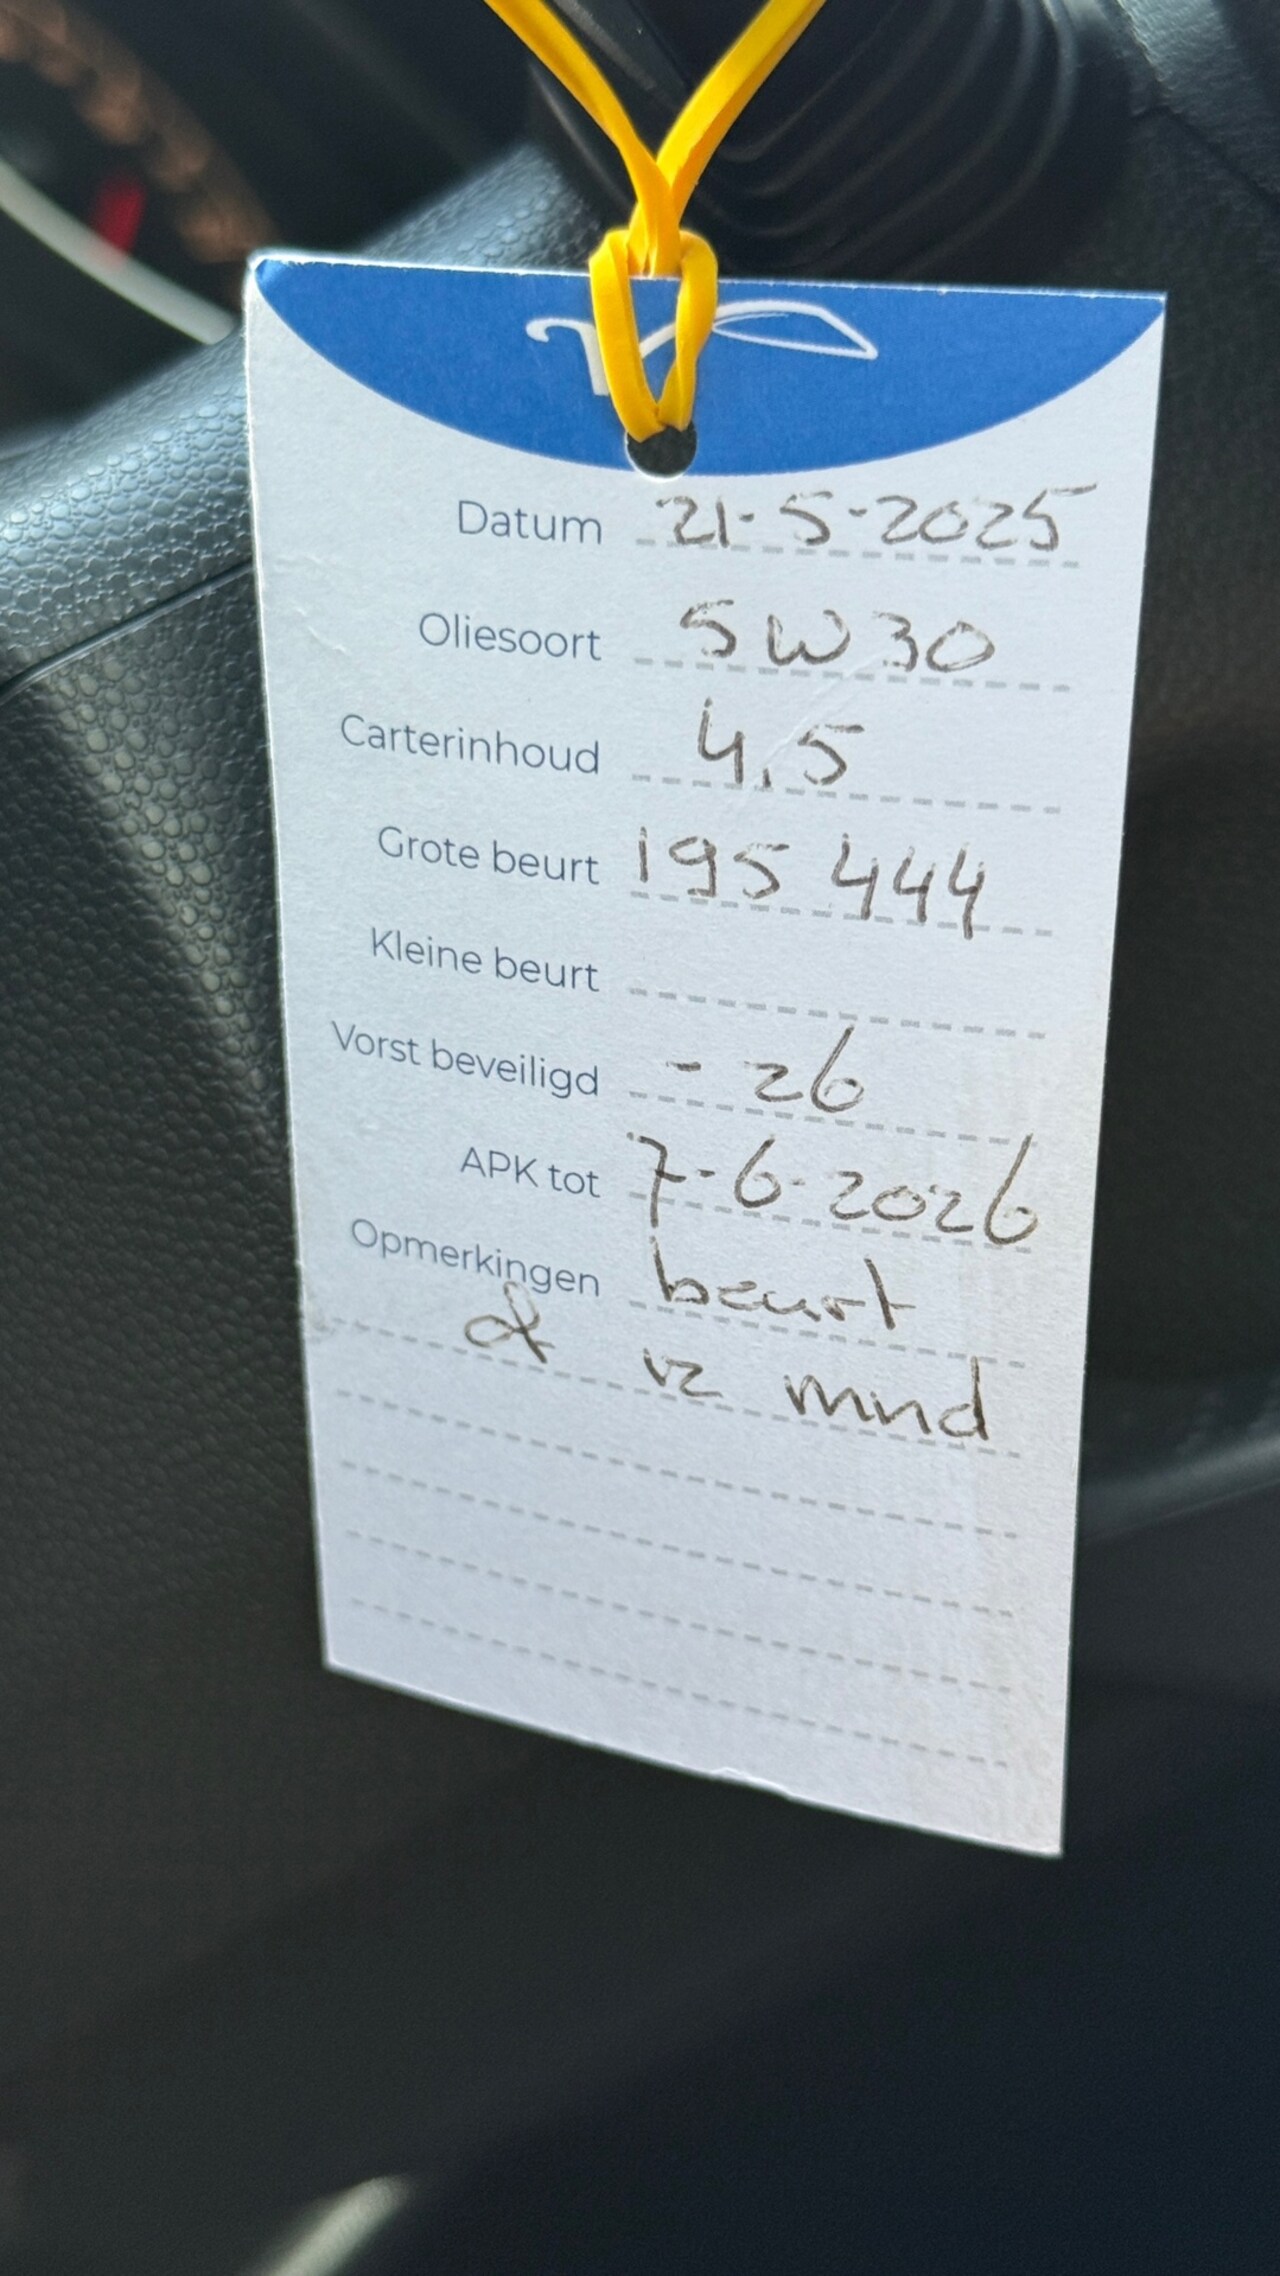 Datum 21-5-2025
Oliesoort 5W30
Carterinhoud 4,5
Grote beurt 195 444
Kleine beurt
Vorst beveiligd - 26
APK tot 7-6-2026
Opmerkingen beurt
12 mnd